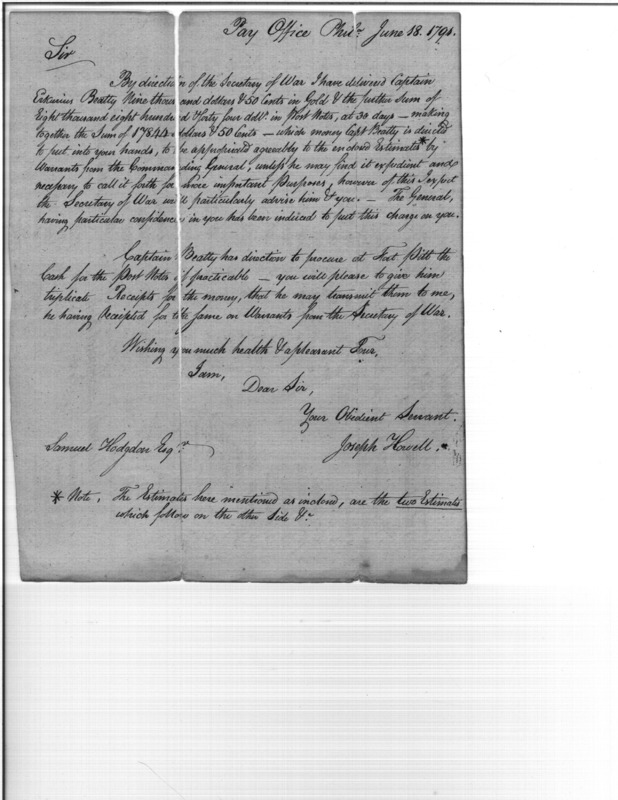 Pay Office Phil.ª June 18. 1791.
Sir
By direction of the Secretary of War I have delivered Captain
Erkurius Beatty Nine thousand dollars & 50 Cents in Gold & the further Sum of
Eight thousand eight hundred & forty four doll.s in Post Notes, at 30 days – making
together the Sum of 17844 dollars & 50 Cents – which money Capt Beatty is directed
to put into your hands, to be appropriated agreeably to the enclosed Estimates * by
Warrants from the Commanding General, unless he may find it expedient and
necessary to call it forth for more important Purposes, however of this I expect
the Secretary of War will particularly advise him & you. – The General,
having particular confidence in you has been induced to put this charge on you.
Captain Beatty has direction to procure at Fort Pitt the
Cash for the Post Notes if practicable – you will please to give him
triplicate Receipts for the money, that he may transmit them to me,
he having receipted for the same on Warrants from the Secretary of War.
Wishing you much health & a pleasant Tour,
I am,
Dear Sir,
Your Obedient Servant.
Samuel Hodgdon Esq.r
Joseph Howell.
* Note. The Estimates here mentioned as inclosed, are the two Estimates
which follow on the other side &c